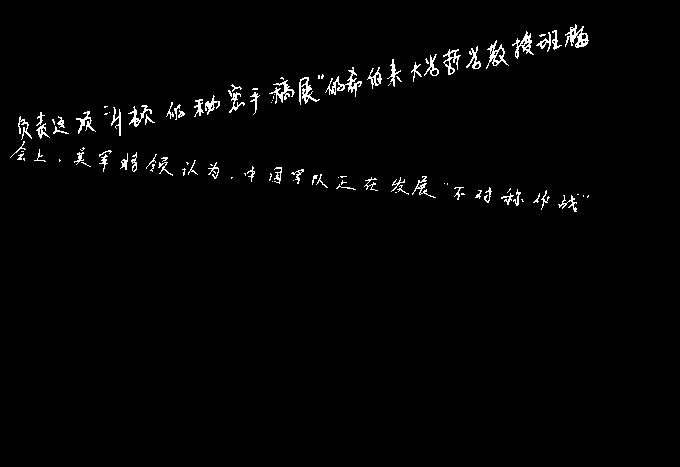 负责这项"牛顿的秘密手稿展"的希伯来大学哲学教授班梅
会上,美军将领认为,中国军队正在发展"不对称作战"